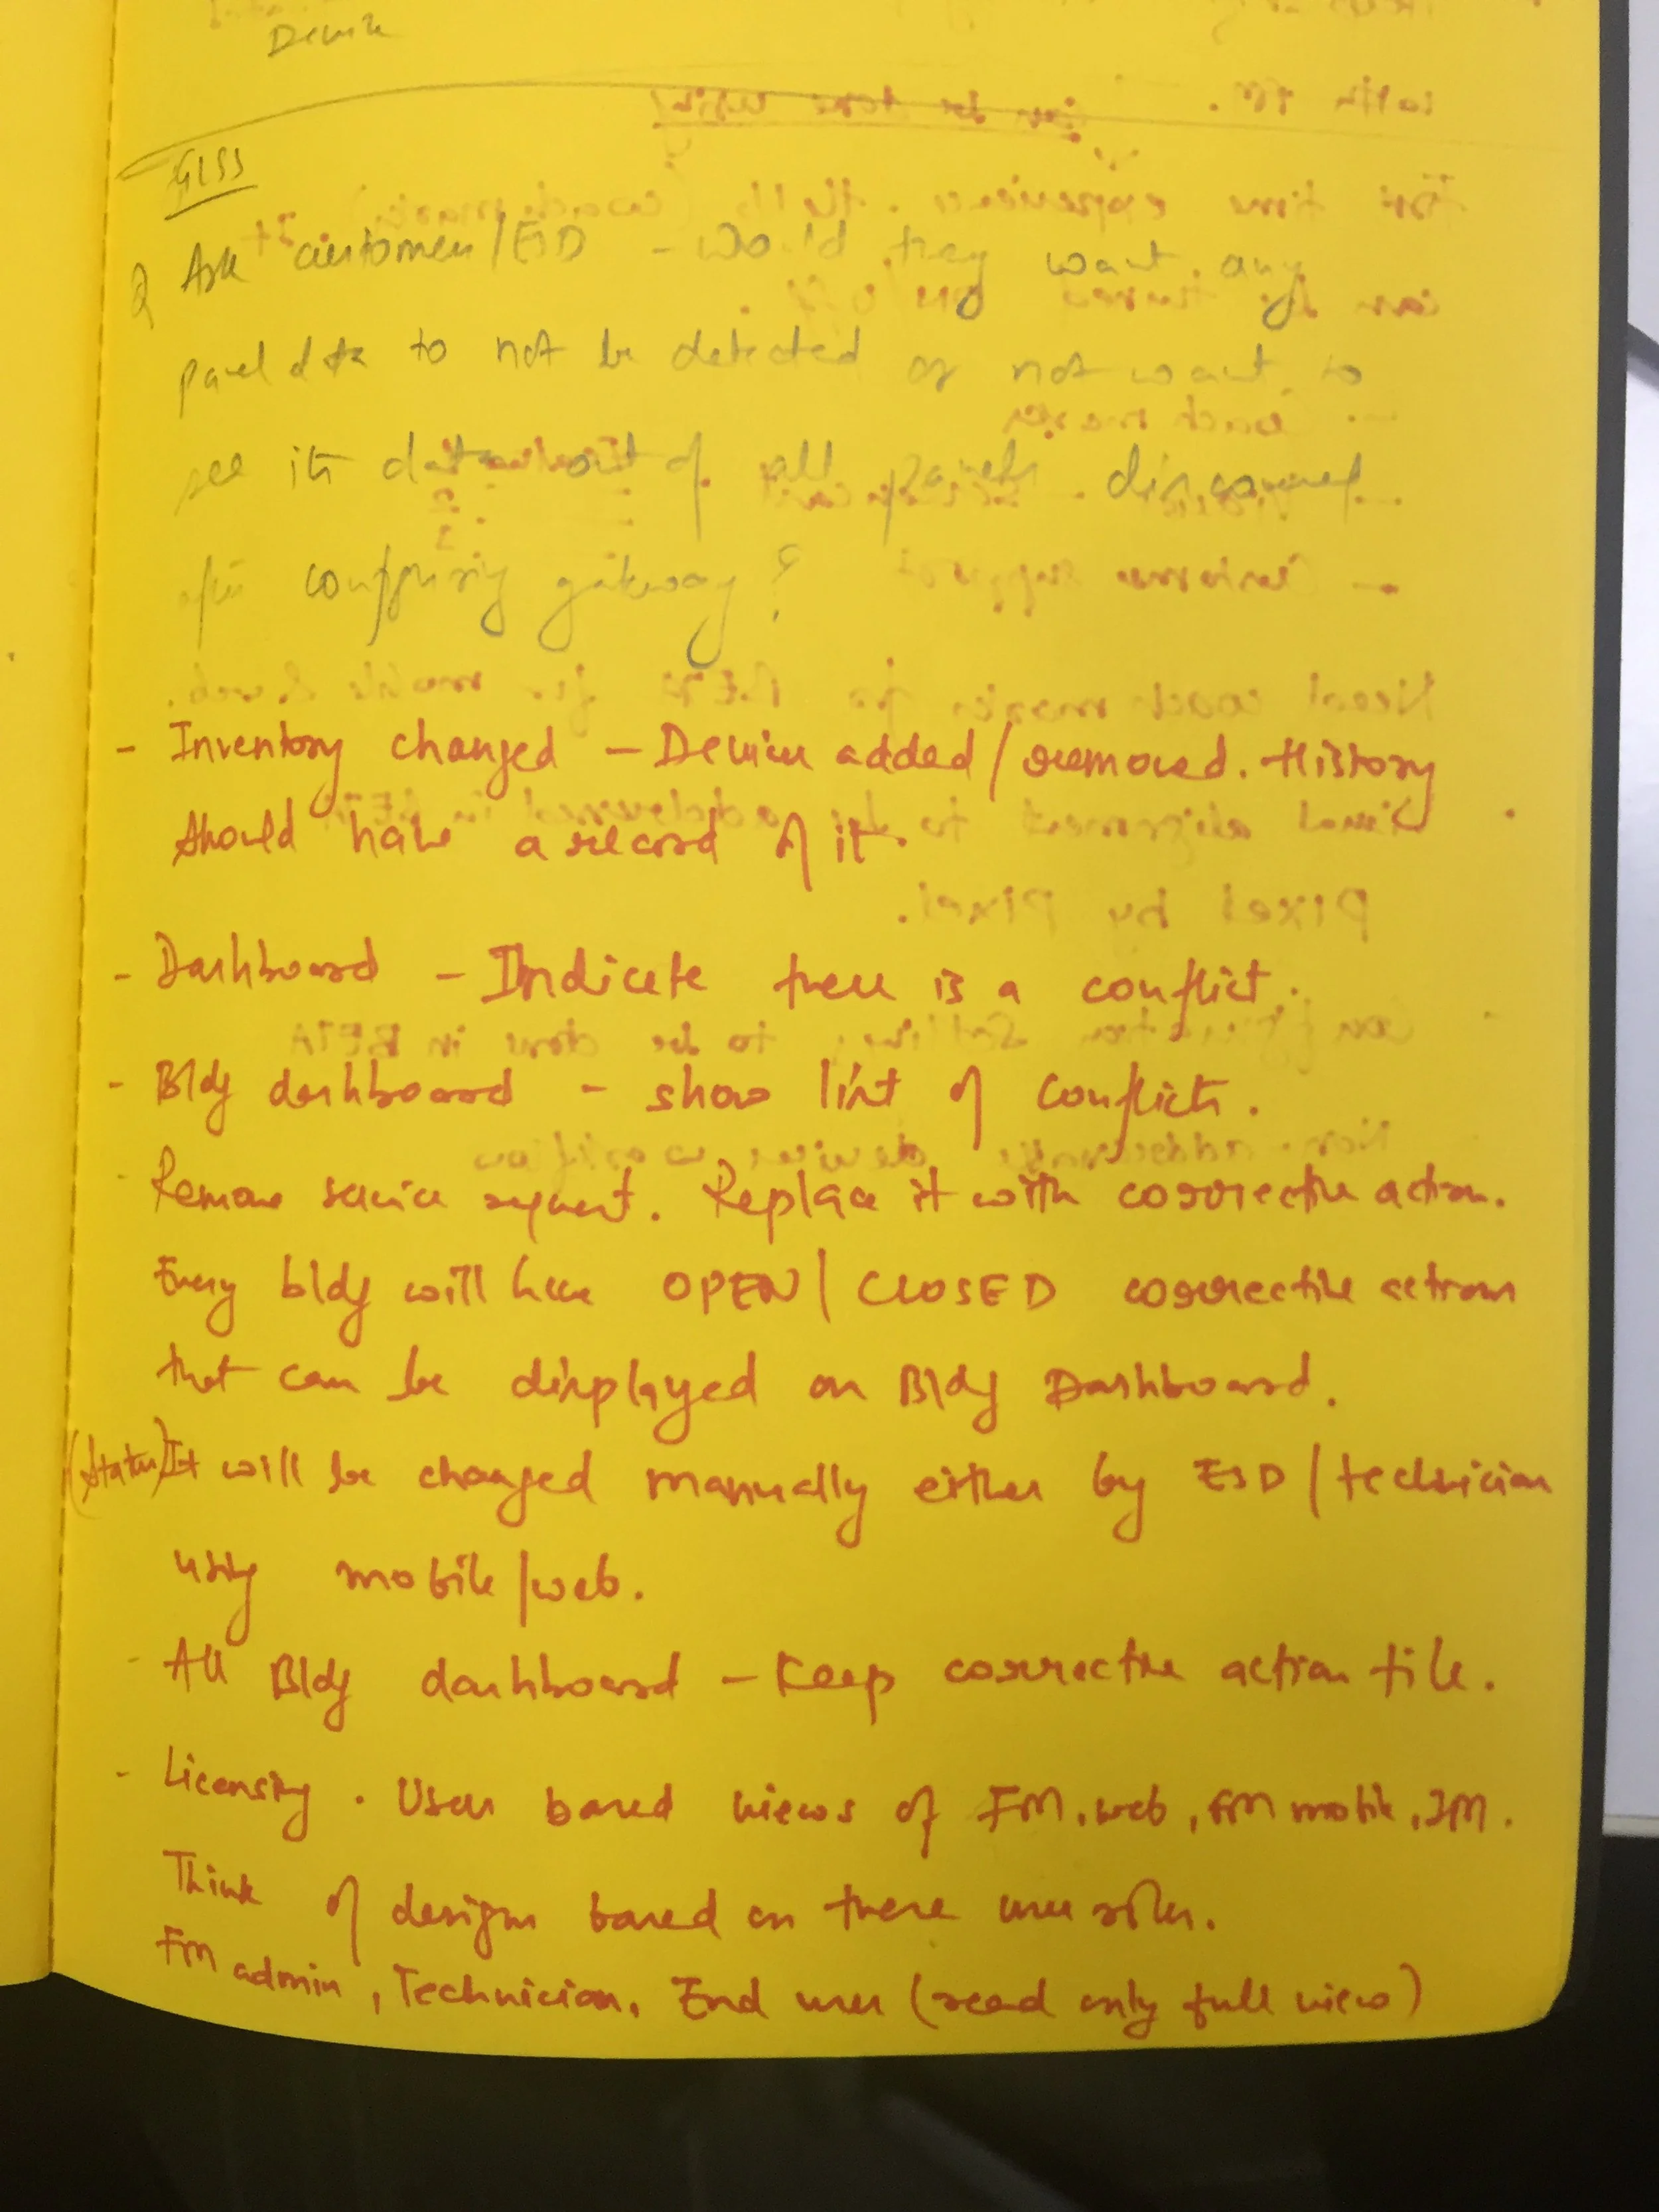 Device
GLSS
Q Ask customer/ESD - Would they want any
panel data to not be detected or not want to
see its data out of all panels discovered
after configuring gateway?
- Inventory changed - Device added/removed. History
should have a record of it.
- Dashboard - Indicate there is a conflict.
- Bldg dashboard - show list of conflicts.
- Remove service request. Replace it with corrective action.
Every bldg will have OPEN/CLOSED corrective actions
that can be displayed on Bldg Dashboard.
(Status) It will be changed manually either by ESD/technician
using mobile/web.
- All Bldg dashboard - Keep corrective action tile.
- Licensing. User based views of FM.web, FM mobile, IM.
Think of designs based on these user roles.
FM admin, Technician, End user (read only full view)